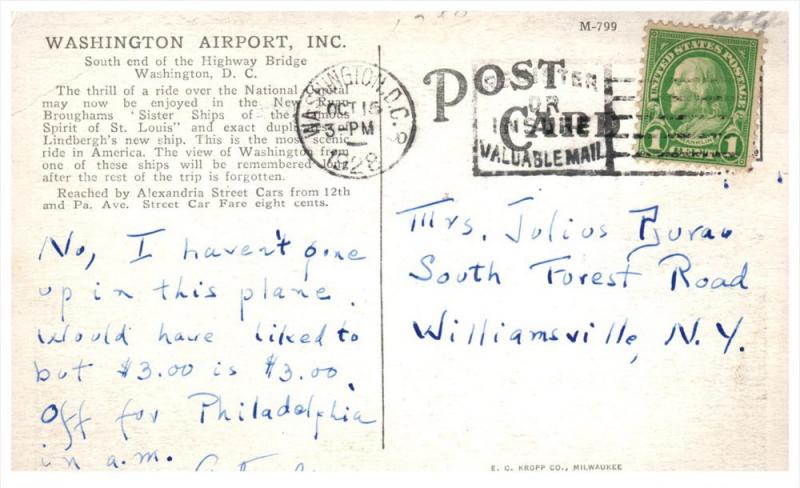 M-799
WASHINGTON AIRPORT, INC.
South end of the Highway Bridge
Washington, D. C.
The thrill of a ride over the National Capital
may now be enjoyed in the New Ryan
Broughams 'Sister Ships of the Famous
Spirit of St. Louis" and exact duplicates of
Lindbergh's new ship. This is the most scenic
ride in America. The view of Washington from
one of these ships will be remembered long
after the rest of the trip is forgotten.
Reached by Alexandria Street Cars from 12th
and Pa. Ave. Street Car Fare eight cents.
WASHINGTON, D.C.
OCT 15
3-PM
1928
POST CARD
REGISTER
OR
INSURE
VALUABLE MAIL
UNITED STATES POSTAGE
FRANKLIN
1 1
No, I haven't gone
up in this plane.
Would have liked to
but $3.00 is $3.00.
Off for Philadelphia
in a.m.
Mrs. Julius
South Forest Road
Williamsville, N.Y.
E. C. KROPP CO., MILWAUKEE